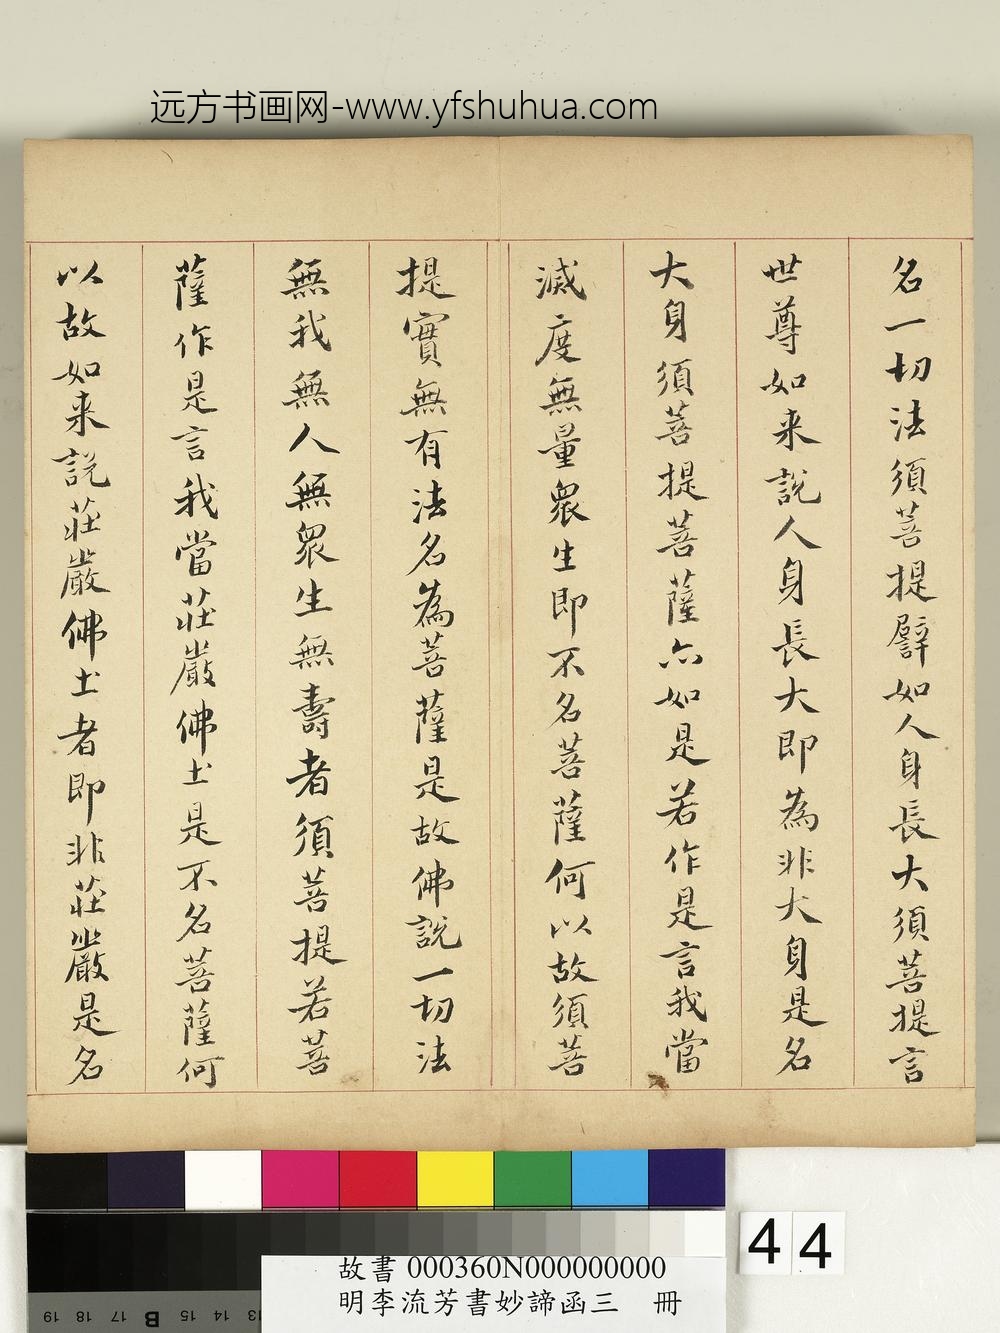 远方书画网-www.yfshuhua.com
名一切法須菩提譬如人身長大須菩提言
世尊如来說人身長大即為非大身是名
大身須菩提菩薩亦如是若作是言我當
滅度無量眾生即不名菩薩何以故須菩
提實無有法名為菩薩是故佛說一切法
無我無人無眾生無壽者須菩提若菩
薩作是言我當莊嚴佛土是不名菩薩何
以故如来說莊嚴佛土者即非莊嚴是名
44
故書 000360N000000000
明李流芳書妙諦函三 冊
19 18 17 B 15 14 13